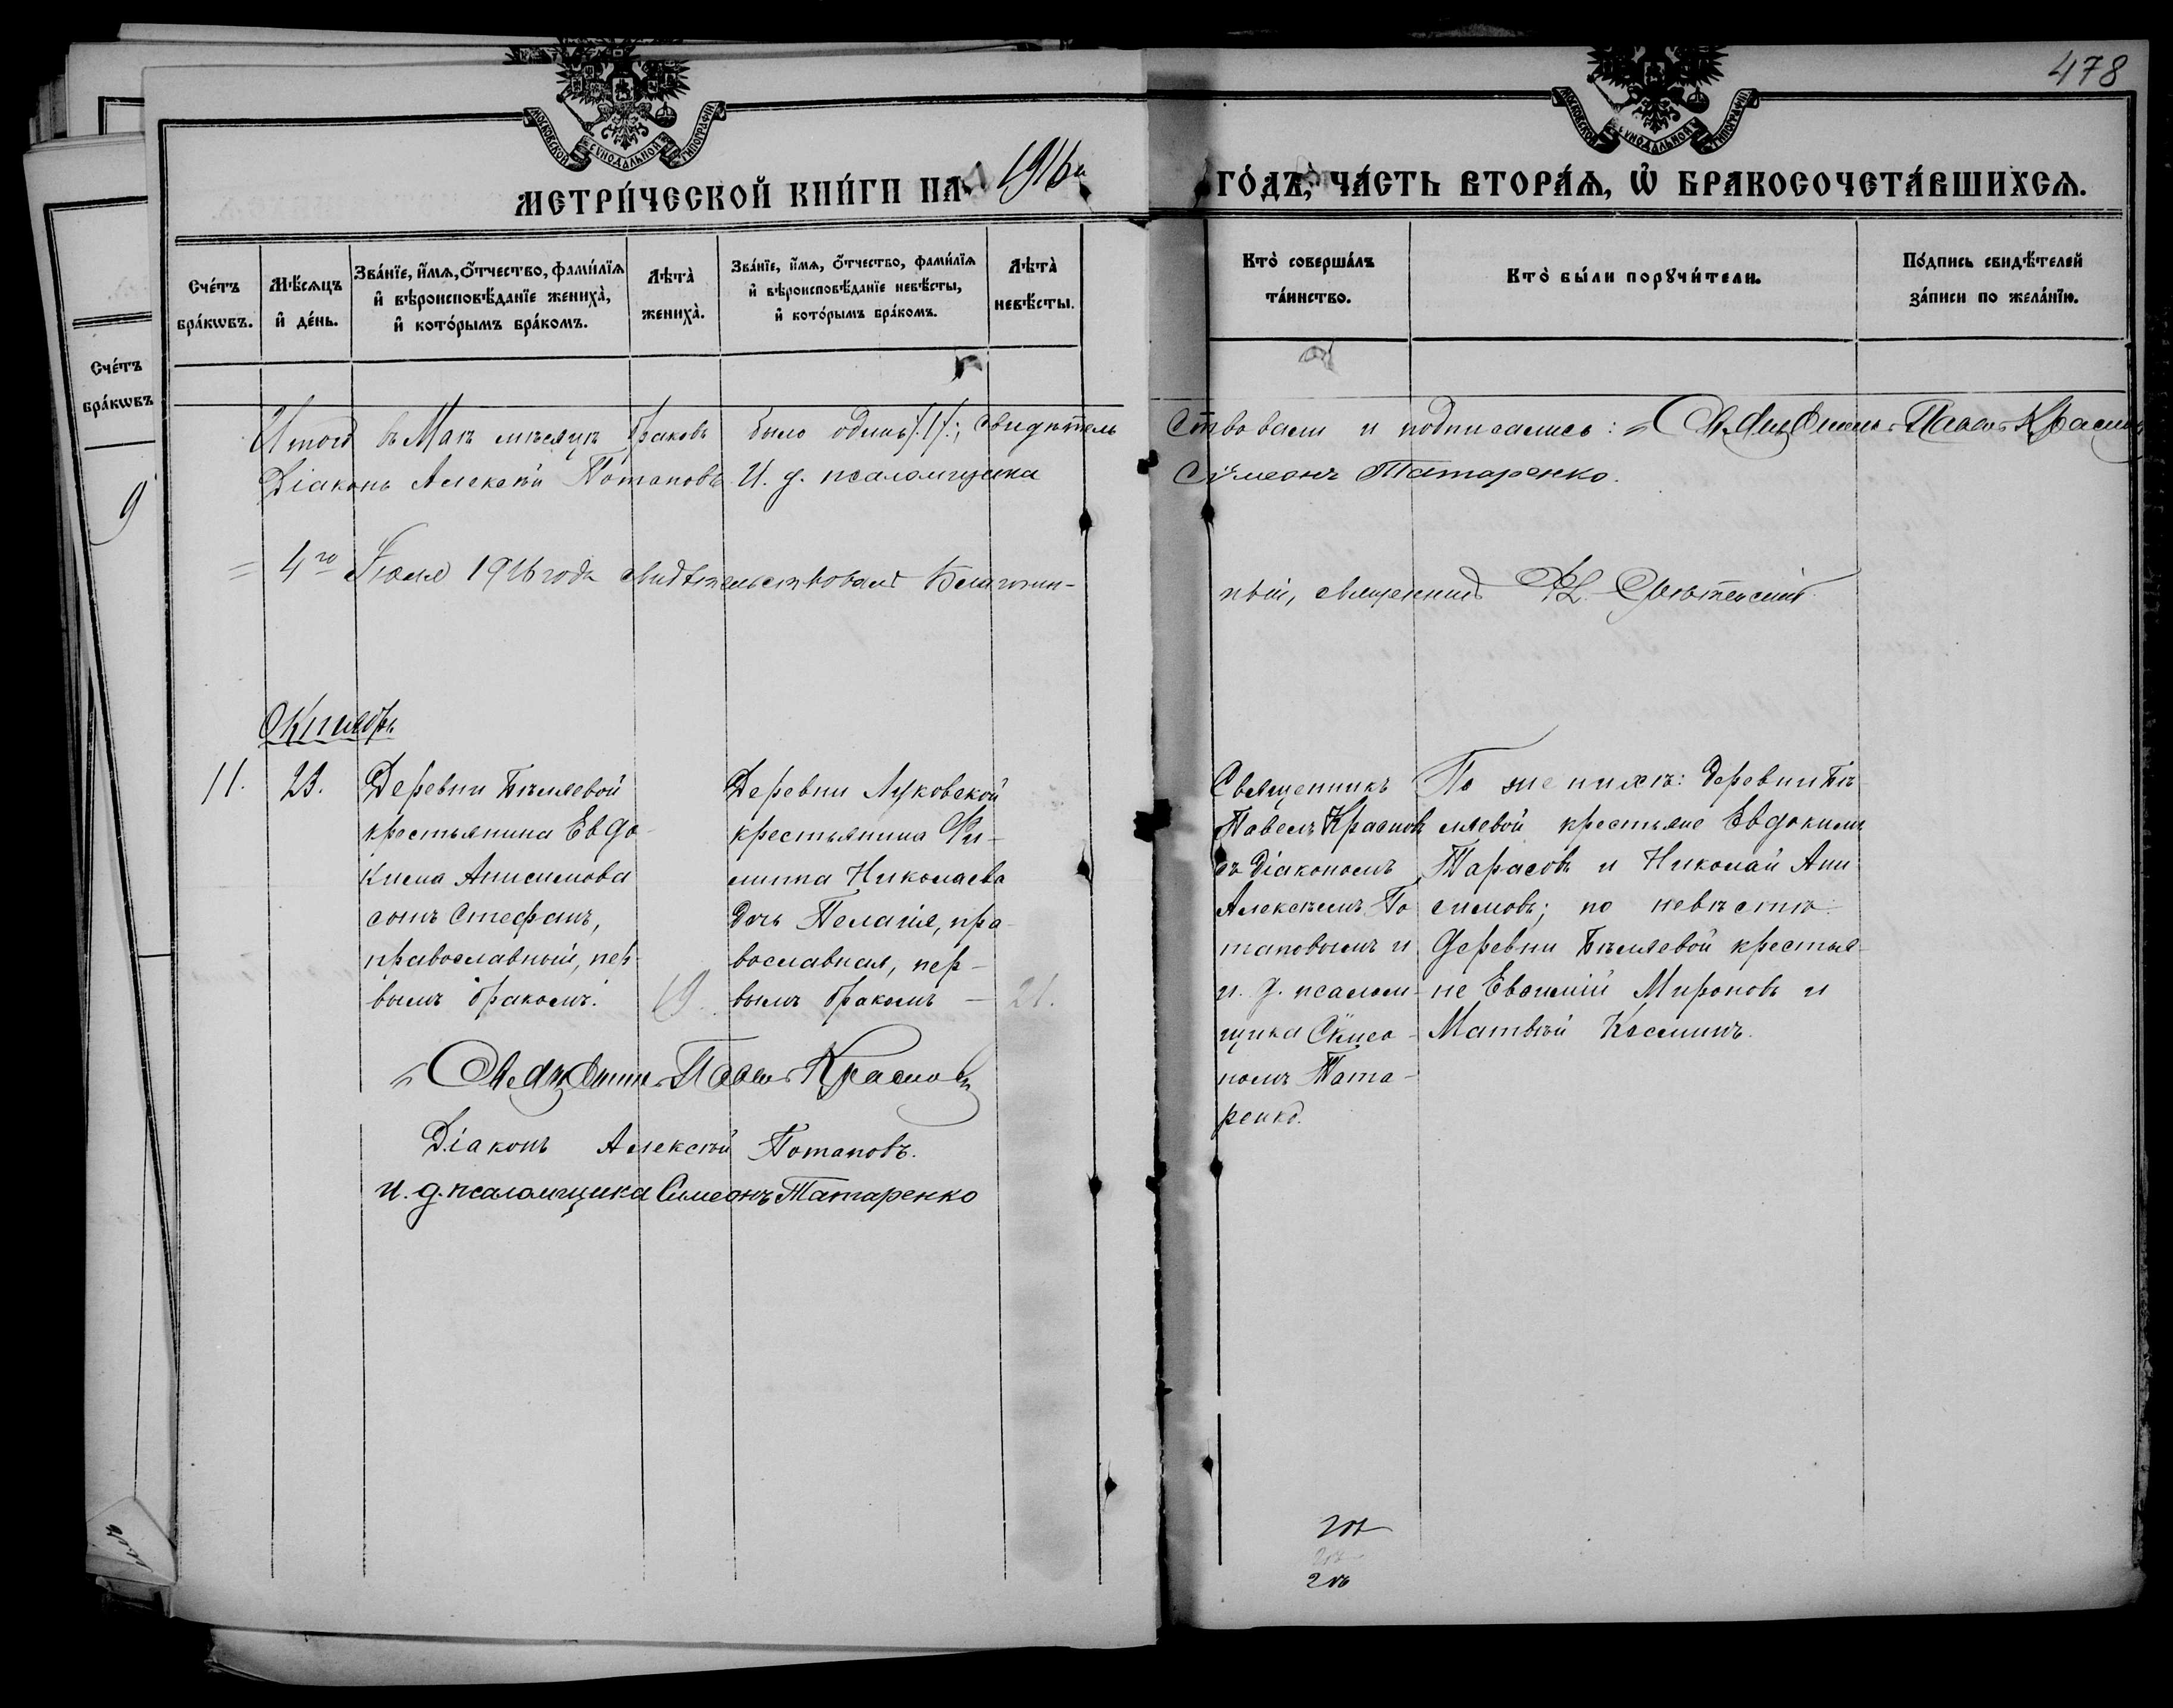 478
МОСКОВСКОЙ СѴНОДАЛЬНОЙ ТИПОГРАФІИ
МОСКОВСКОЙ СѴНОДАЛЬНОЙ ТИПОГРАФІИ
МЕТРИ́ЧЕСКОЙ КНИ́ГИ НА 1916й ГО́ДЪ, ЧА́СТЬ ВТОРА́Ѧ, Ѡ҆ БРАКОСОЧЕТА́ВШИХСѦ.
Сче́тъ бра́кѡвъ.
Мѣ́сѧцъ и҆ де́нь.
Зва́нїе, и҆́мѧ, о҆́тчество, фами́лїѧ и҆ вѣроисповѣ́данїе жениха̀, и҆ кото́рымъ бра́комъ.
Лѣта̀ жениха̀.
Зва́нїе, и҆́мѧ, о҆́тчество, фами́лїѧ и҆ вѣроисповѣ́данїе невѣ́сты, и҆ кото́рымъ бра́комъ.
Лѣта̀ невѣ́сты.
Кто̀ соверша́лъ та́инство.
Кто̀ бы́ли порꙋчи́тели.
По́дпись свидѣ́телей за́писи по жела́нїю.
Сче́тъ
бра́кѡвъ
9
Итого въ Маѣ мѣсяцѣ браковъ было одинъ /.1/.; свидѣтельствовали и подписались: Священникъ Павелъ Красновъ
Діаконъ Алексѣй Потаповъ. И. д. псаломщика Сѵмеонъ Татаренко.
4го Іюля 1916 года свидѣтельствовалъ Благочинный, священникъ
Октябрь
11.
23.
Деревни Бѣляевой
крестьянина Евдо-
кима Анисимова
сынъ Стефанъ,
православный, пер-
вымъ бракомъ.
19.
Деревни Луковской
крестьянина Фи-
липпа Николаева
дочь Пелагія, пра-
вославная, пер-
вымъ бракомъ —
21.
Священникъ
Павелъ Красновъ
съ Діакономъ
Алексѣемъ По
таповымъ и
и. д. псалом-
щика Сѵмео-
номъ Тата-
ренко.
По женихѣ: деревни Бѣ-
ляевой крестьяне Евдокимъ
Тарасовъ и Николай Ани
симовъ; по невѣстѣ:
деревни Бѣляевой крестья-
не Евѳимій Мироновъ и
Матвѣй Косминъ.
Священникъ Павелъ Красновъ
Діаконъ Алексѣй Потаповъ.
И. д. псаломщика Симеонъ Татаренко